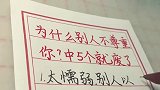 为什么别人不尊重
你?中5个就废了
1.太懦弱别人以